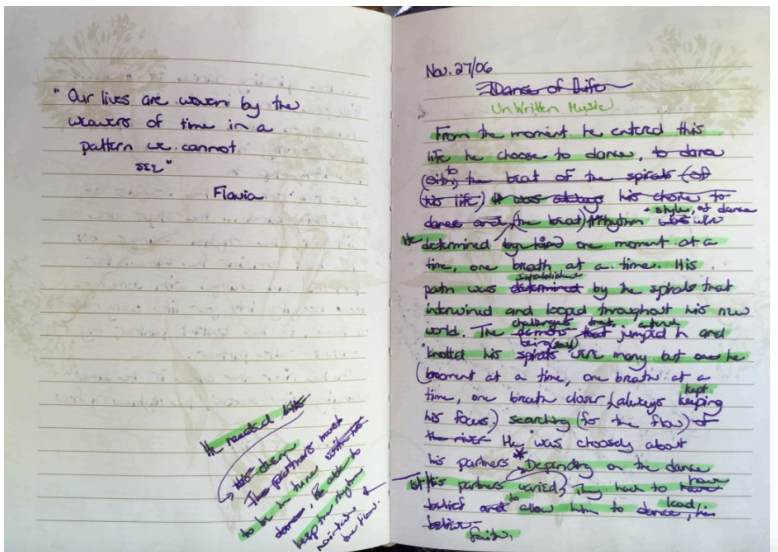 "Our lives are woven by the
weavers of time in a
pattern we cannot
see"
Flavia
He needed
The partners must
to be in tune with
dance, Be able to
keep the rhythm
maintain
Nov. 27/06
Danse of Life
Un Written Music
From the moment he entered this
life he choose to dance, to dance
to the beat of the spirals (of
his life) It was always his choice to
dance and (the beat) Rhythm + style, of dance
He determined one moment at a
time, one breath at a time. His
established
path was determined by the spirals that
interwined and looped throughout his new
world. The challenges that jumped in and
being (soul)
knotted his spirals were many but one he
(moment at a time, one breath at a
kept
time, one breath closer, always keeping
his focus) searching (for the flow) of
the river He was choosely about
his partners * Depending on the dance
his partners varied, they had to have
belief and to allow him to dance, lead,
believe
faith.